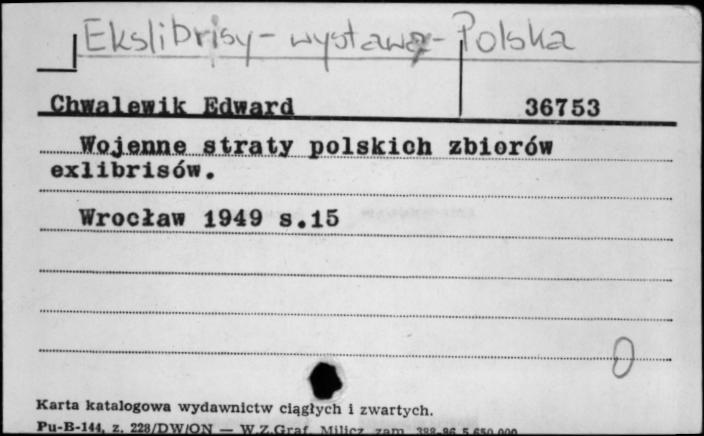 Ekslibrisy - wystawy - Polska
Chwalewik Edward 36753
Wojenne straty polskich zbiorów
exlibrisów.
Wrocław 1949 s.15
0
Karta katalogowa wydawnictw ciągłych i zwartych.
Pu-B-144, z. 228/DW/ON — W.Z.Graf. Milicz zam. 388-86 5.650.000